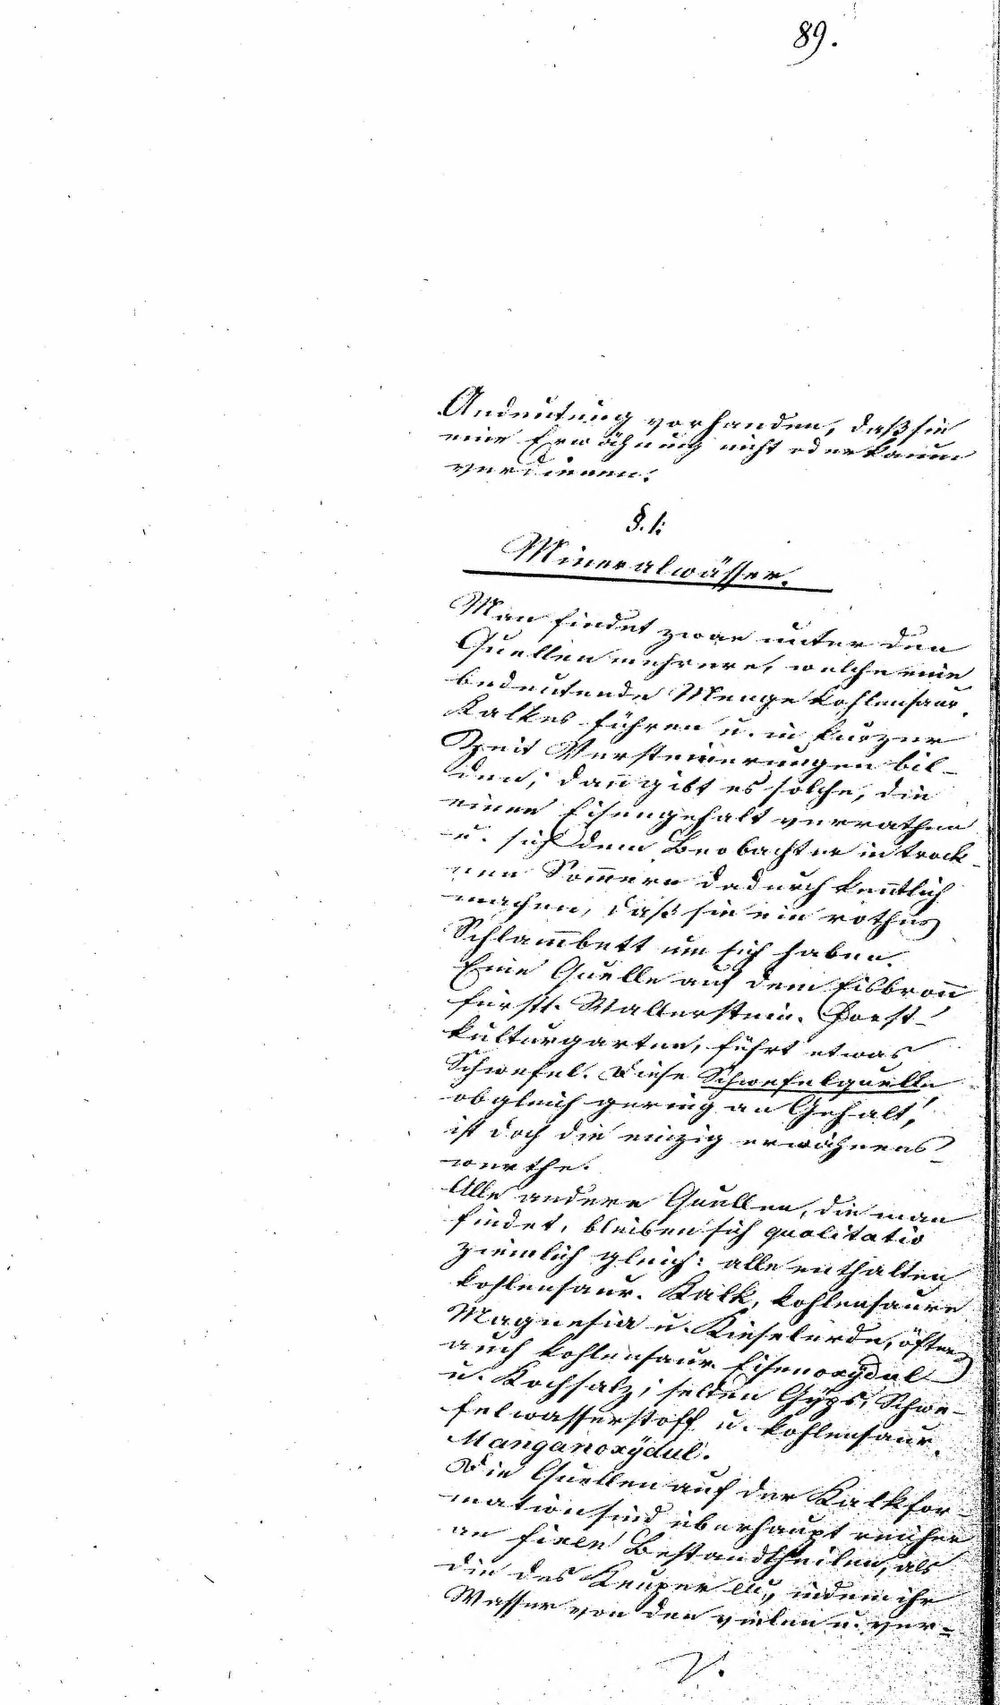 89.
Andeutung vorhanden, daß sie
eine Erwähnung nicht oder kaum
verdienen.
§. 1:
Mineralwässer.
Man findet zwar unter den
Quellen mehrere, welche eine
bedeutende Menge kohlensaur.
Kalkes führen u. in kurzer
Zeit Versteinerungen bil-
den; dann gibt es solche, die
einen Eisengehalt verrathen
u. sich dem Beobachter in trock-
nen Sommern dadurch kentlich
machen, daß sie ein rothes
Schlam̄bett um sich haben.
Eine Quelle auf dem Eisbron̄
fürstl. Wallerstein. Forst-
kulturgarten, führt etwas
Schwefel. Diese Schwefelquelle,
obgleich gering an Gehalt,
ist doch die einzig erwähnens-
werthe.
Alle andere Quellen, die man
findet, bleiben sich qualitativ
ziemlich gleich: alle enthalten
kohlensaur. Kalk, kohlensaure
Magnesia u. Kieselerde, öfters
auch kohlensaur. Eisenoxÿdul
u. Kochsalz; selten Gÿps, Schwe-
felwasserstoff u. kohlensaur.
Manganoxÿdul.
Die Quellen auf der Kalkfor-
mation sind überhaupt reicher
an fixen Bestandtheilen, als
die des Keuper indem ihr
Wasser von den vielen u. ver-